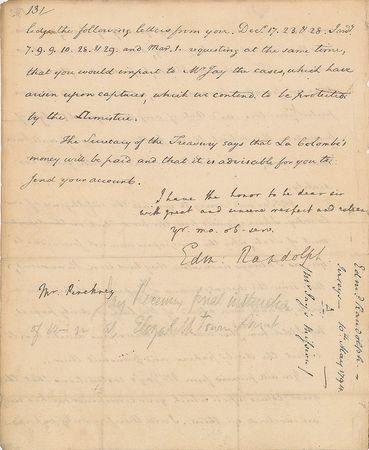 131/
ledge the following letters from you. Decr. 17. 23. & 28. Jany.
7. 9. 9. 10. 28. & 29. and Mar. 1. requesting at the same time,
that you would impart to Mr Jay the cases, which have
arisen upon captures, which we contend to be protected
by the Armistice.
The Secretary of the Treasury says that La Colombe's
money will be paid and that it is advisable for you to
send your account.
I have the honor to be dear sir
with great and sincere respect and esteem
yr. mo. ob. serv.
Edm: Randolph
Mr. Pinckney
Jay
of Elizabeth Town
Edmd Randolph —
10th May 1794
(Mr Jay's Mission)